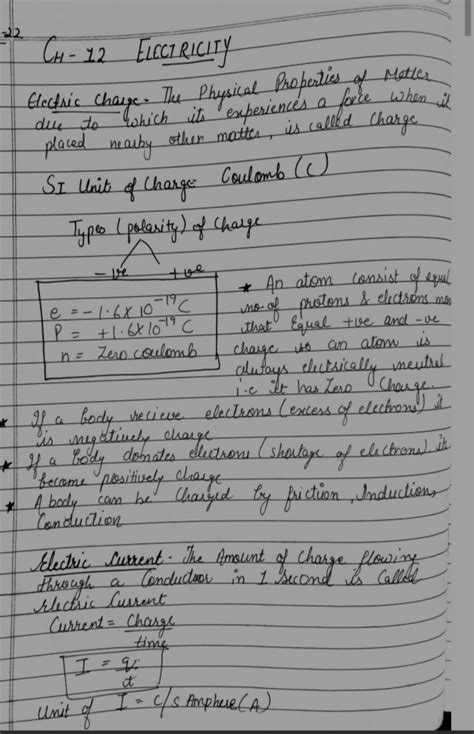 22
CH-12 ELECTRICITY
Electric Charge - The Physical Properties of Matter
due to which its experiences a force when it
placed nearby other matter, is called Charge
SI Unit of Charge- Coulomb (C)
Types (polarity) of Charge
-ve +ve
e = -1.6X10⁻¹⁹C
P = +1.6X10⁻¹⁹C
n = Zero coulomb
* An atom consist of equal
no. of protons & electrons
that Equal +ve and -ve
charge so an atom is
always electrically neutral
i.e It has Zero Charge.
* If a body recieve electrons (excess of electrons) it
is negatively charge
* If a body donates electrons (shortage of electrons). It
become positively charge
* A body can be Charged by friction, Induction,
Conduction
Electric Current - The Amount of Charge flowing
through a Conductor in 1 second is Called
Electric Current
Current = Charge
time
I = q
t
Unit of I = C/s Amphere(A)